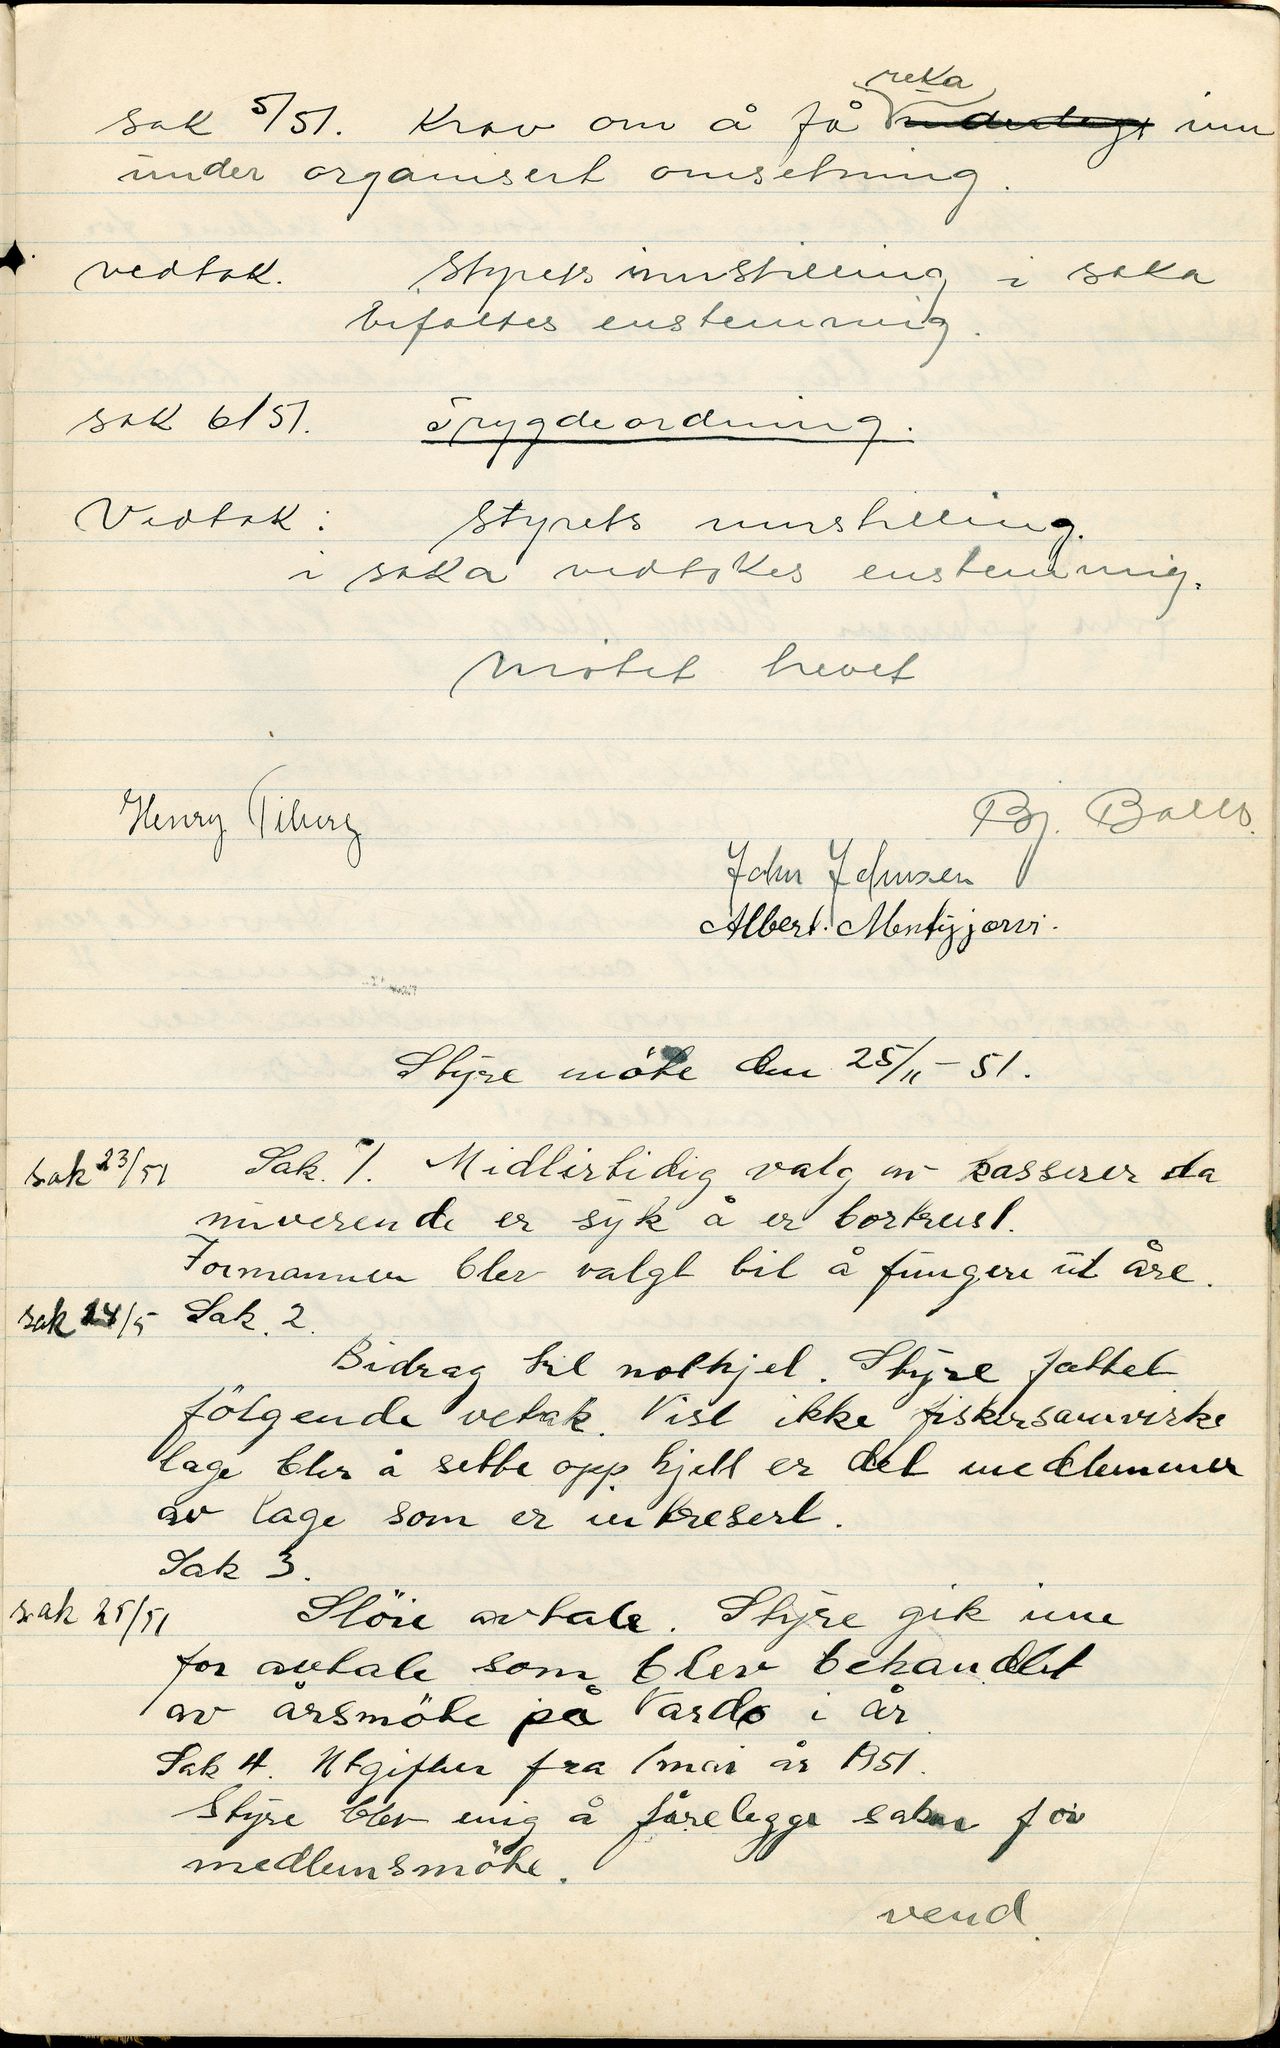 sak 5/51. Krav om å få reka inn
under organisert omsetning.
vedtak. Styrets innstilling i saka
bifaltes enstemmig.
sak 6/51. Trygdeordning.
Vedtak: Styrets innstilling
i saka vedtokes enstemmig.
Møtet hevet
Henry Tiberg
Bj. Ballo.
John Johnsen
Albert. Mentyjærvi.
Styre möte den 25/11 – 51.
sak 23/51 Sak. 1. Midlertidig valg av kasserer da
nuverende er syk å er bortreist.
Formannen blev valgt til å fungere ut åre.
sak 24/5 Sak. 2.
Bidrag til nothjel. Styre fattet
fölgende vetak. Vist ikke fiskersamvirke
lage blir å sette opp hjell er det medlemmer
av lage som er intresert.
Sak 3.
sak 25/51 Störe avtale. Styre gik inn
for avtale som blev behandlet
av årsmöte på Vardö i år.
Sak 4. Utgifter fra 1 mai år 1951.
Styre blev enig å forelegge saken for
medlemsmöte.
vend.